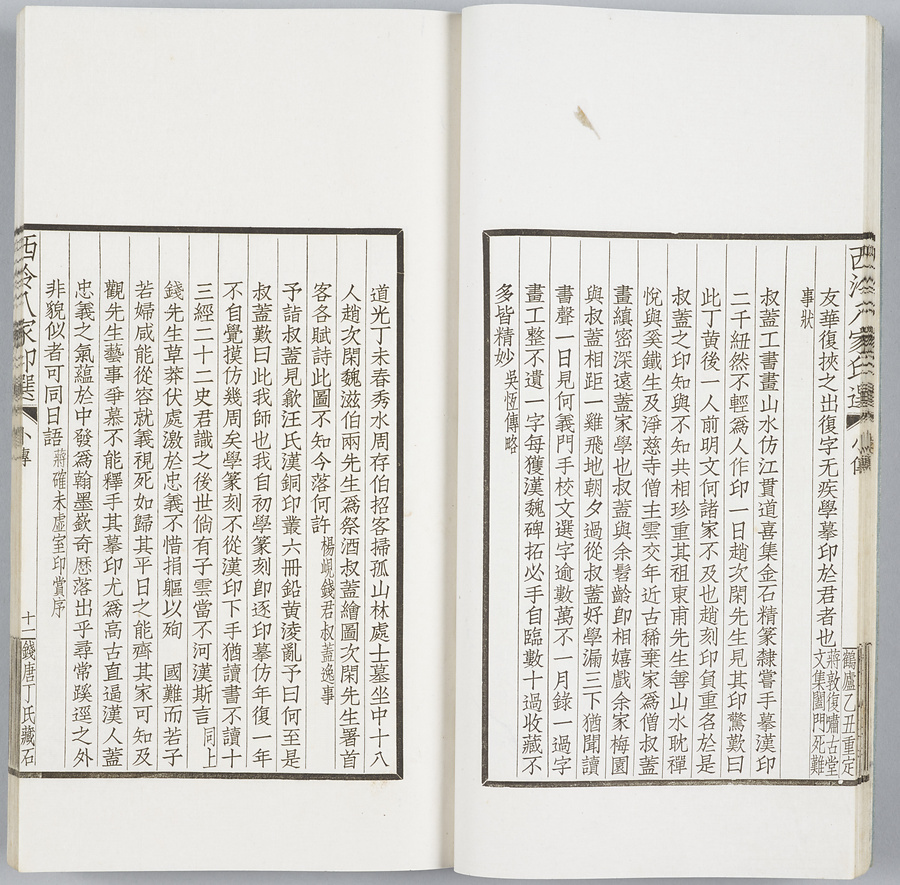 西泠八家印選
小傳
友華復挾之出復字无疾學摹印於君者也
蔣敦復嘯古堂
文集闔門死難
事狀
鶴廬乙丑重定
叔蓋工書畫山水仿江貫道喜集金石精篆隸嘗手摹漢印
二千紐然不輕為人作印一日趙次閑先生見其印驚歎曰
此丁黃後一人前明文何諸家不及也趙刻印負重名於是
叔蓋之印知與不知共相珍重其祖東甫先生善山水耽禪
悅與奚鐵生及淨慈寺僧主雲交年近古稀棄家為僧叔蓋
畫縝密深遠蓋家學也叔蓋與余髫齡即相嬉戲余家梅園
與叔蓋相距一雞飛地朝夕過從叔蓋好學漏三下猶聞讀
書聲一日見何義門手校文選字逾數萬不一月錄一過字
畫工整不遺一字每獲漢魏碑拓必手自臨數十過收藏不
多皆精妙 吳恆傳略
道光丁未春秀水周存伯招客掃孤山林處士墓坐中十八
人趙次閑魏滋伯兩先生為祭酒叔蓋繪圖次閑先生署首
客各賦詩此圖不知今落何許 楊峴錢君叔蓋逸事
予詣叔蓋見歙汪氏漢銅印叢六冊鉛黃淩亂予曰何至是
叔蓋歎曰此我師也我自初學篆刻即逐印摹仿年復一年
不自覺摸仿幾周矣學篆刻不從漢印下手猶讀書不讀十
三經二十二史君識之後世倘有子雲當不河漢斯言 同上
錢先生草莽伏處激於忠義不惜捐軀以殉 國難而若子
若婦咸能從容就義視死如歸其平日之能齊其家可知及
觀先生藝事爭慕不能釋手其摹印尤為高古直逼漢人蓋
忠義之氣蘊於中發為翰墨嶔奇歷落出乎尋常蹊逕之外
非貌似者可同日語 蔣確未虛室印賞序
西泠八家印選
小傳
十二
錢唐丁氏藏石